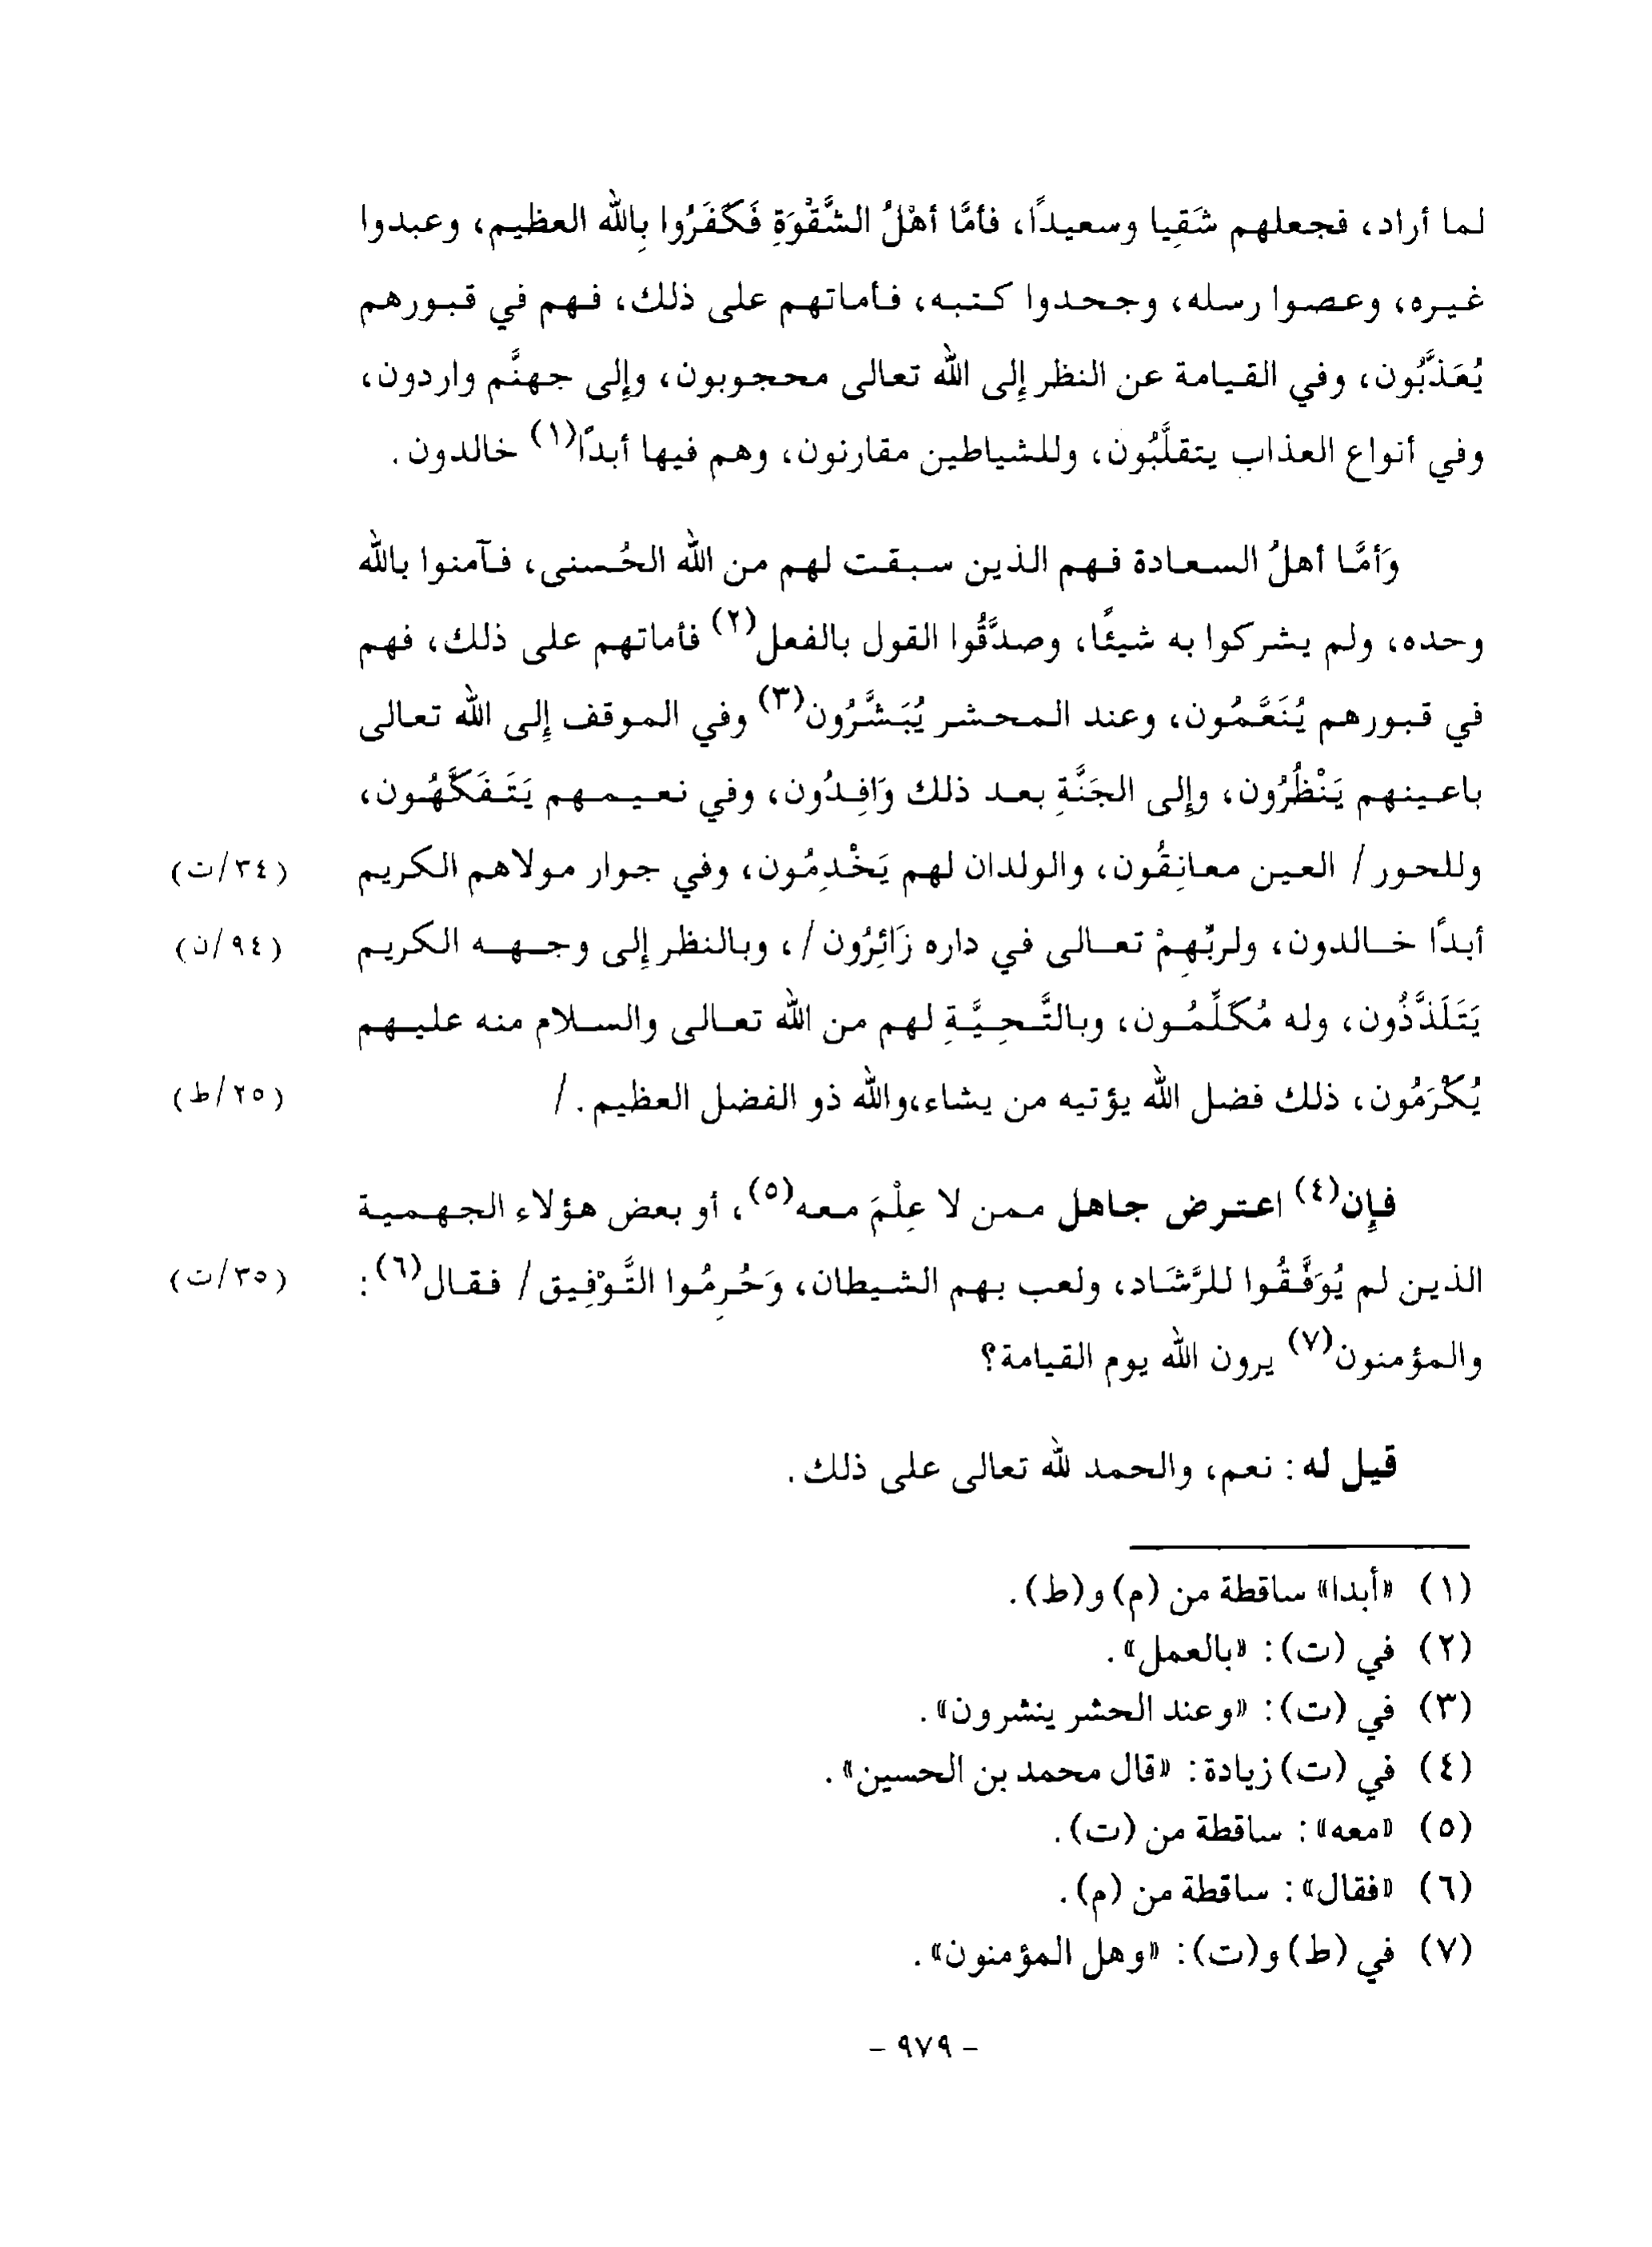 لما أراد، فجعلهم شَقِيا وسعيدًا، فأمَّا أهْلُ الشَّقْوَةِ فَكَفَرُوا بِالله العظيم، وعبدوا
غيره، وعصوا رسله، وجحدوا كتبه، فأماتهم على ذلك، فهم في قبورهم
يُعَذَّبُون، وفي القيامة عن النظر إلى الله تعالى محجوبون، وإلى جهنَّم واردون،
وفي أنواع العذاب يتقلَّبُون، وللشياطين مقارنون، وهم فيها أبدًا(١) خالدون.
وَأمَّا أهلُ السعادة فهم الذين سبقت لهم من الله الحُسنى، فآمنوا بالله
وحده، ولم يشركوا به شيئًا، وصدَّقُوا القول بالفعل(٢) فأماتهم على ذلك، فهم
في قبورهم يُنَعَّمُون، وعند المحشر يُبَشَّرُون(٣) وفي الموقف إلى الله تعالى
باعينهم يَنْظُرُون، وإلى الجَنَّةِ بعد ذلك وَافِدُون، وفي نعيمهم يَتَفَكَّهُون،
وللحور / العين معانِقُون، والولدان لهم يَخْدِمُون، وفي جوار مولاهم الكريم (٣٤/ت)
أبدًا خالدون، ولربِّهِمْ تعالى في داره زَائِرُون /، وبالنظر إلى وجهه الكريم (٩٤/ن)
يَتَلَذَّذُون، وله مُكَلِّمُون، وبالتَّحِيَّةِ لهم من الله تعالى والسلام منه عليهم
يُكْرَمُون، ذلك فضل الله يؤتيه من يشاء،والله ذو الفضل العظيم. / (٢٥/ط)
فإن(٤) اعترض جاهل ممن لا عِلْمَ معه(٥)، أو بعض هؤلاء الجهمية
الذين لم يُوَفَّقُوا للرَّشَاد، ولعب بهم الشيطان، وَحُرِمُوا التَّوْفِيق / فقال(٦): (٣٥/ت)
والمؤمنون(٧) يرون الله يوم القيامة؟
قيل له: نعم، والحمد لله تعالى على ذلك.
(١) «أبدا» ساقطة من (م) و(ط).
(٢) في (ت): «بالعمل».
(٣) في (ت): «وعند الحشر ينشرون».
(٤) في (ت) زيادة: «قال محمد بن الحسين».
(٥) «معه»: ساقطة من (ت).
(٦) «فقال»: ساقطة من (م).
(٧) في (ط) و(ت): «وهل المؤمنون».
- ٩٧٩ -